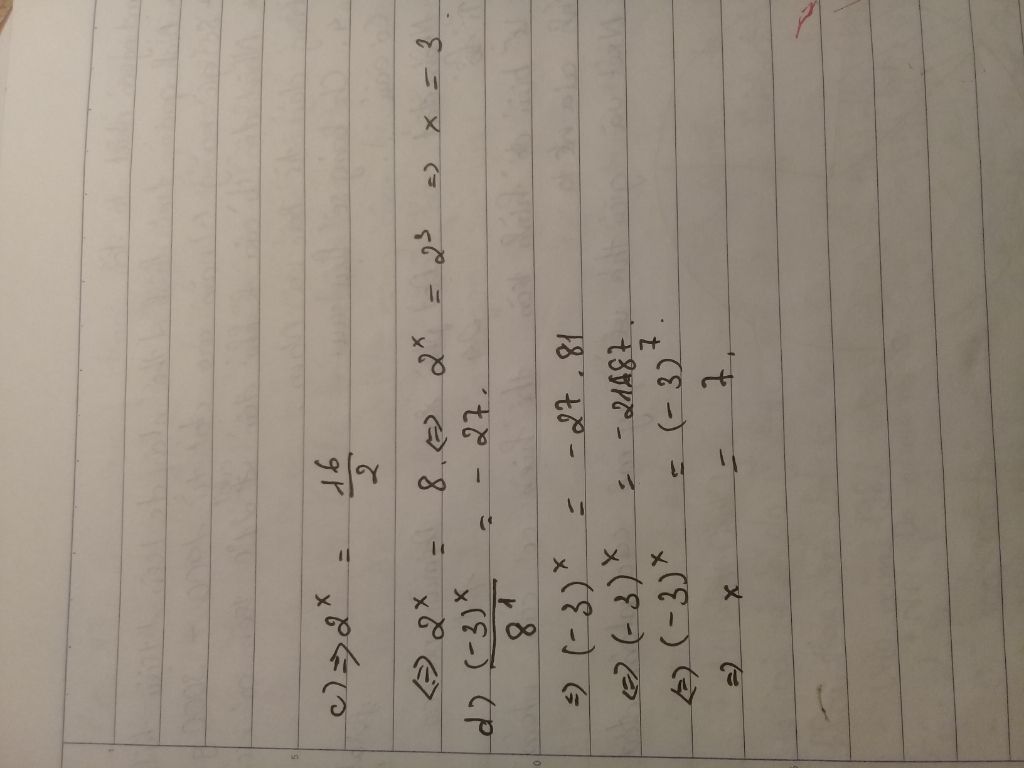 c) => 2^x = 16/2
<=> 2^x = 8. <=> 2^x = 2^3 => x = 3.
d) (-3)^x/81 = -27.
=> (-3)^x = -27.81
<=> (-3)^x = -2187.
<=> (-3)^x = (-3)^7.
=> x = 7.